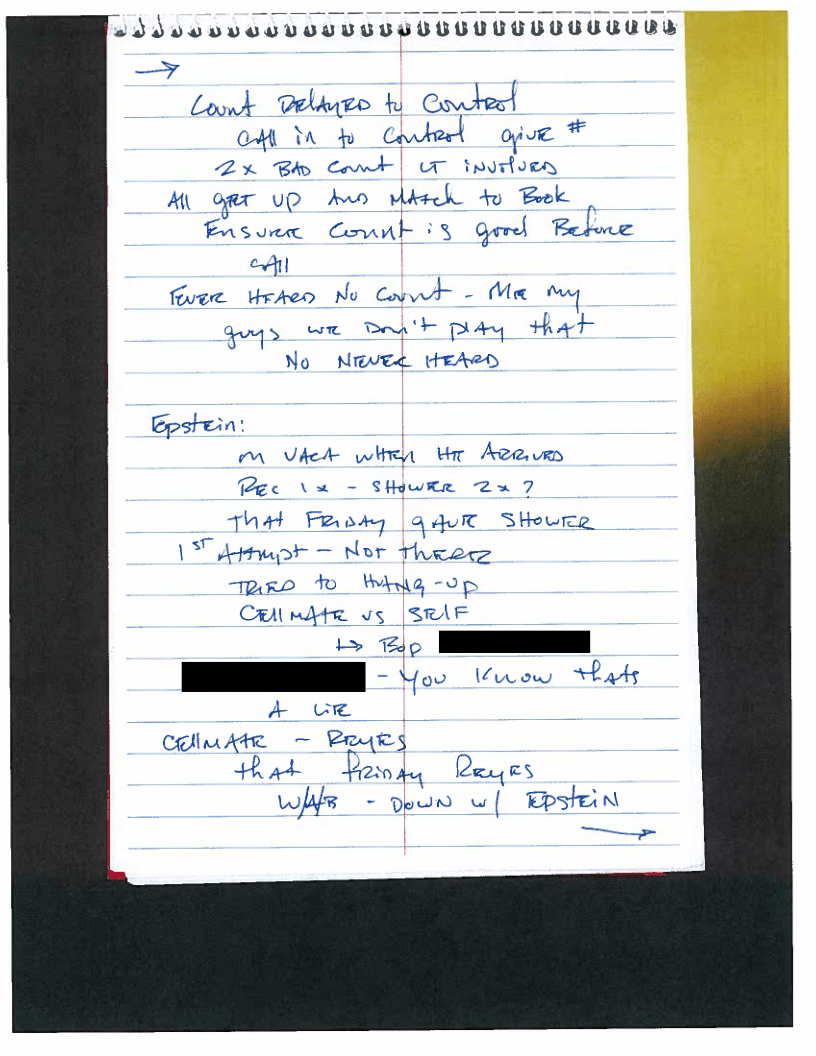 →
Count DELAYED to Control
CAll iN to Control giVE #
2 x BAD Count LT iNVOlVED
All gET UP AND MAtch to Book
ENSURE Count is good BeforE
cAll
EVER HEARD No Count - ME my
guys WE Don't plAy thAt
No NEVER HEARD
Epstein:
VACA WHEN HE ARRiVED
REC 1x - SHOWER 2x ?
ThAt FRiDAy gAVE SHOWER
1ST AttMpt - Not ThERE
TRiED to HANg-Up
CEllMAtE VS SElF
↳ Bop
- You KNow thAts
A LiE
CEllMAtE - REyES
thAt FRiDAy REyES
W/A/B - DowN w/ EpstEiN
→